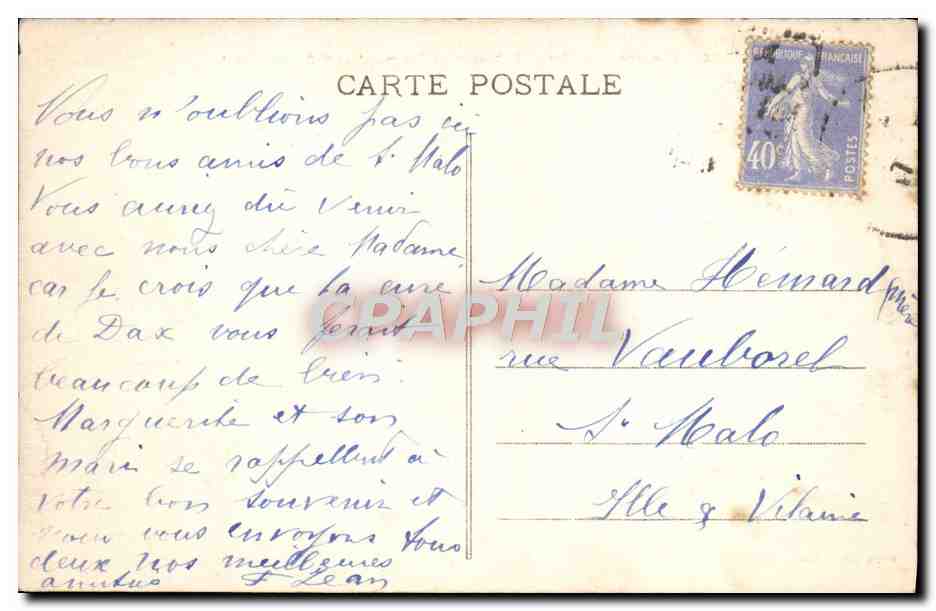 CARTE POSTALE
RÉPUBLIQUE FRANÇAISE
40c
POSTES
Vous n'oublions pas ici
nos bons amis de St Malo
Vous auriez dû venir
avec nous chère Madame
car je crois que la cure
de Dax vous ferait
beaucoup de bien.
Marguerite et son
mari se rappellent à
votre bon souvenir et
nous vous envoyons tous
deux nos meilleures
amitiés F Jean
Madame Hémard mère
rue Vauborel
St Malo
Ille & Vilaine
CPAPHIL